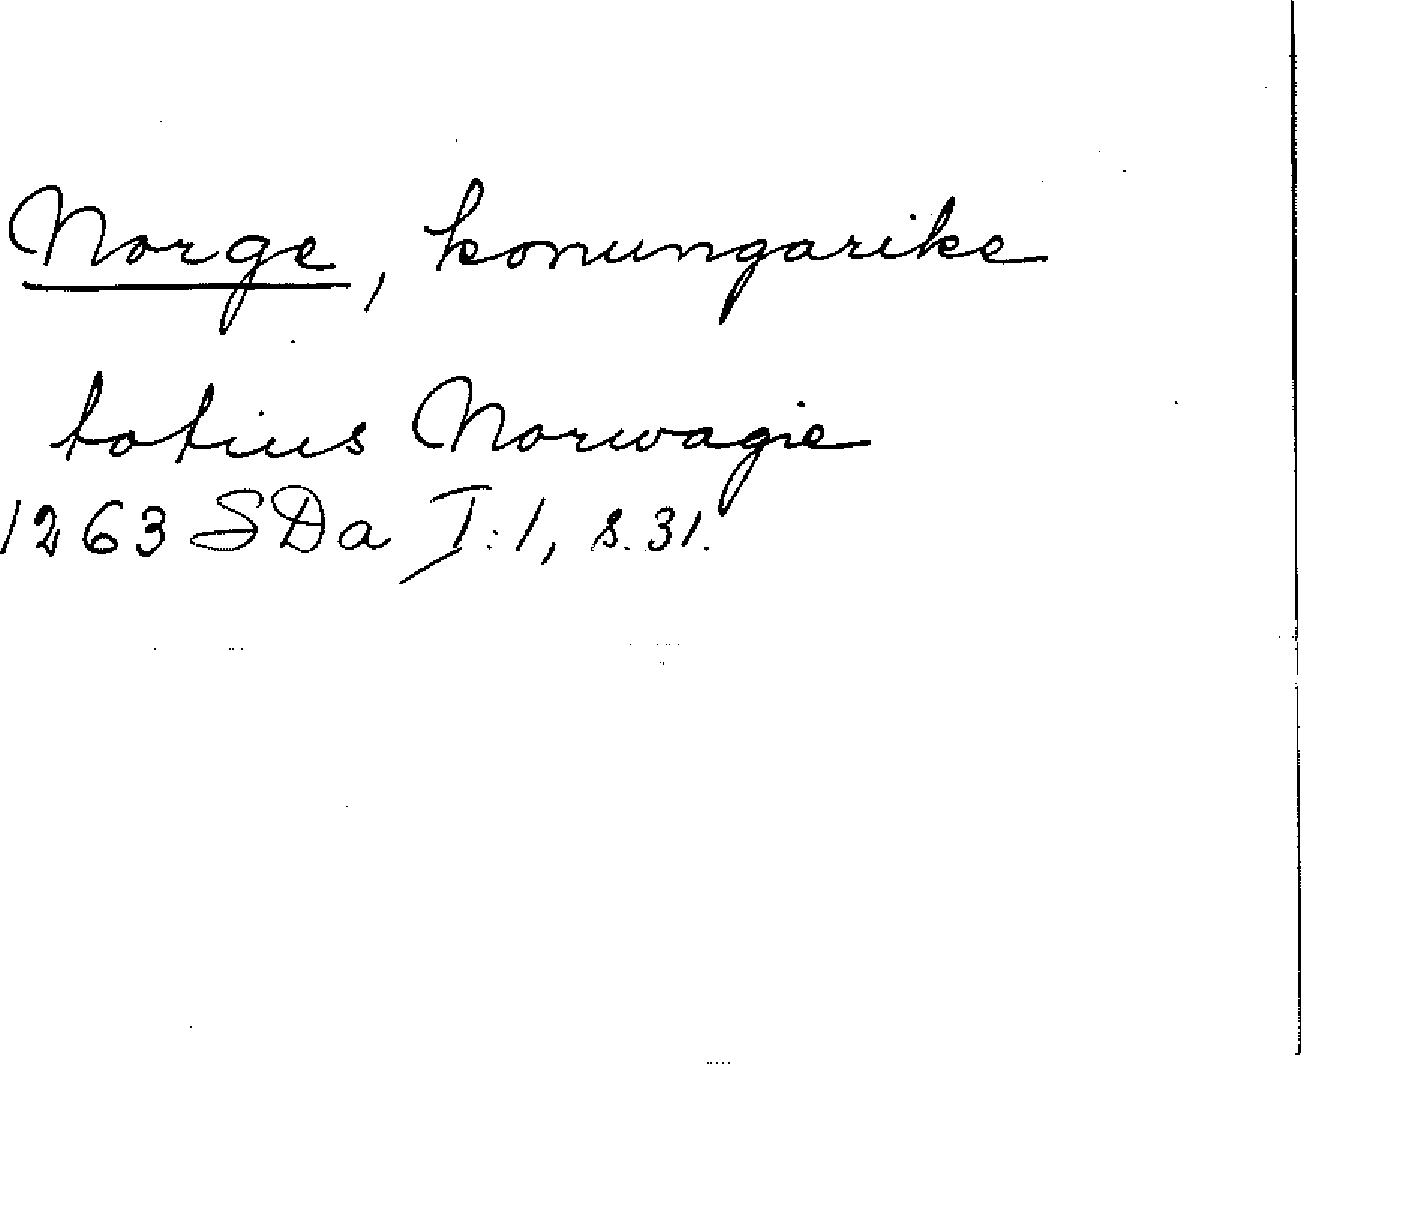 Norge, konungarike
totius Norwagie
1263 SDa I:1, s. 31.